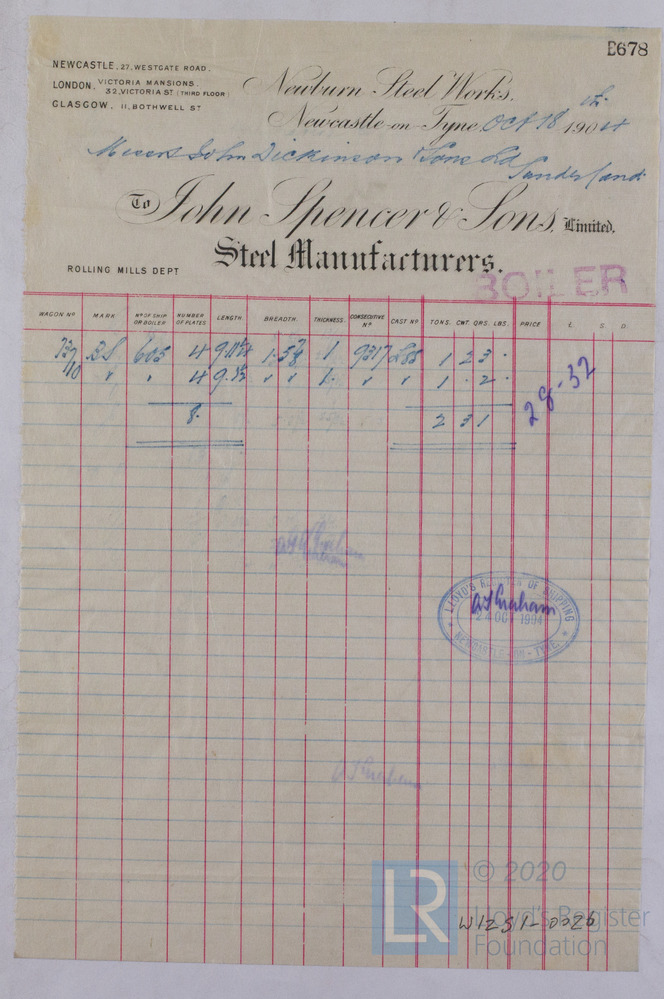 E678
NEWCASTLE. 27, WESTGATE ROAD.
LONDON. VICTORIA MANSIONS.
32, VICTORIA ST (THIRD FLOOR)
GLASGOW. 11, BOTHWELL ST
Newburn Steel Works.
Newcastle-on-Tyne, Oct 18th 1904
Messrs John Dickinson & Sons Ld
Sunderland
To John Spencer & Sons, Limited.
Steel Manufacturers.
ROLLING MILLS DEPT
BOILER
WAGON No MARK No OF SHIP OR BOILER NUMBER OF PLATES LENGTH BREADTH. THICKNESS. CONSECUTIVE No CAST No TONS. CWT. QRS. LBS. PRICE £ S. D.
605 4 1 9317 1 2 3 .
" " 4 " " 1 . " " 1 . 2 .
8. 2 3 1
28.32
LLOYD'S REGISTER OF SHIPPING
24 OCT 1904
NEWCASTLE-ON-TYNE.
LR
© 2020
Lloyd's Register
Foundation
W1251-0026